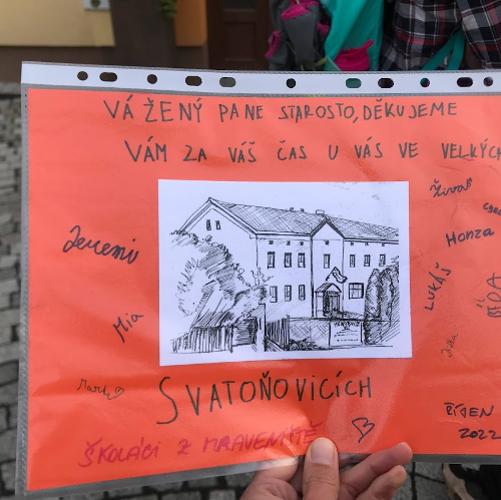 VÁŽENÝ PANE STAROSTO, DĚKUJEME
VÁM ZA VÁŠ ČAS U VÁS VE VELKÝCH
Živa
Honza
Jeremi
LUKÁŠ
Mia
SVATOŇOVICÍCH
ŘÍJEN
2022
ŠKOLÁCI Z MRAVENIŠTĚ